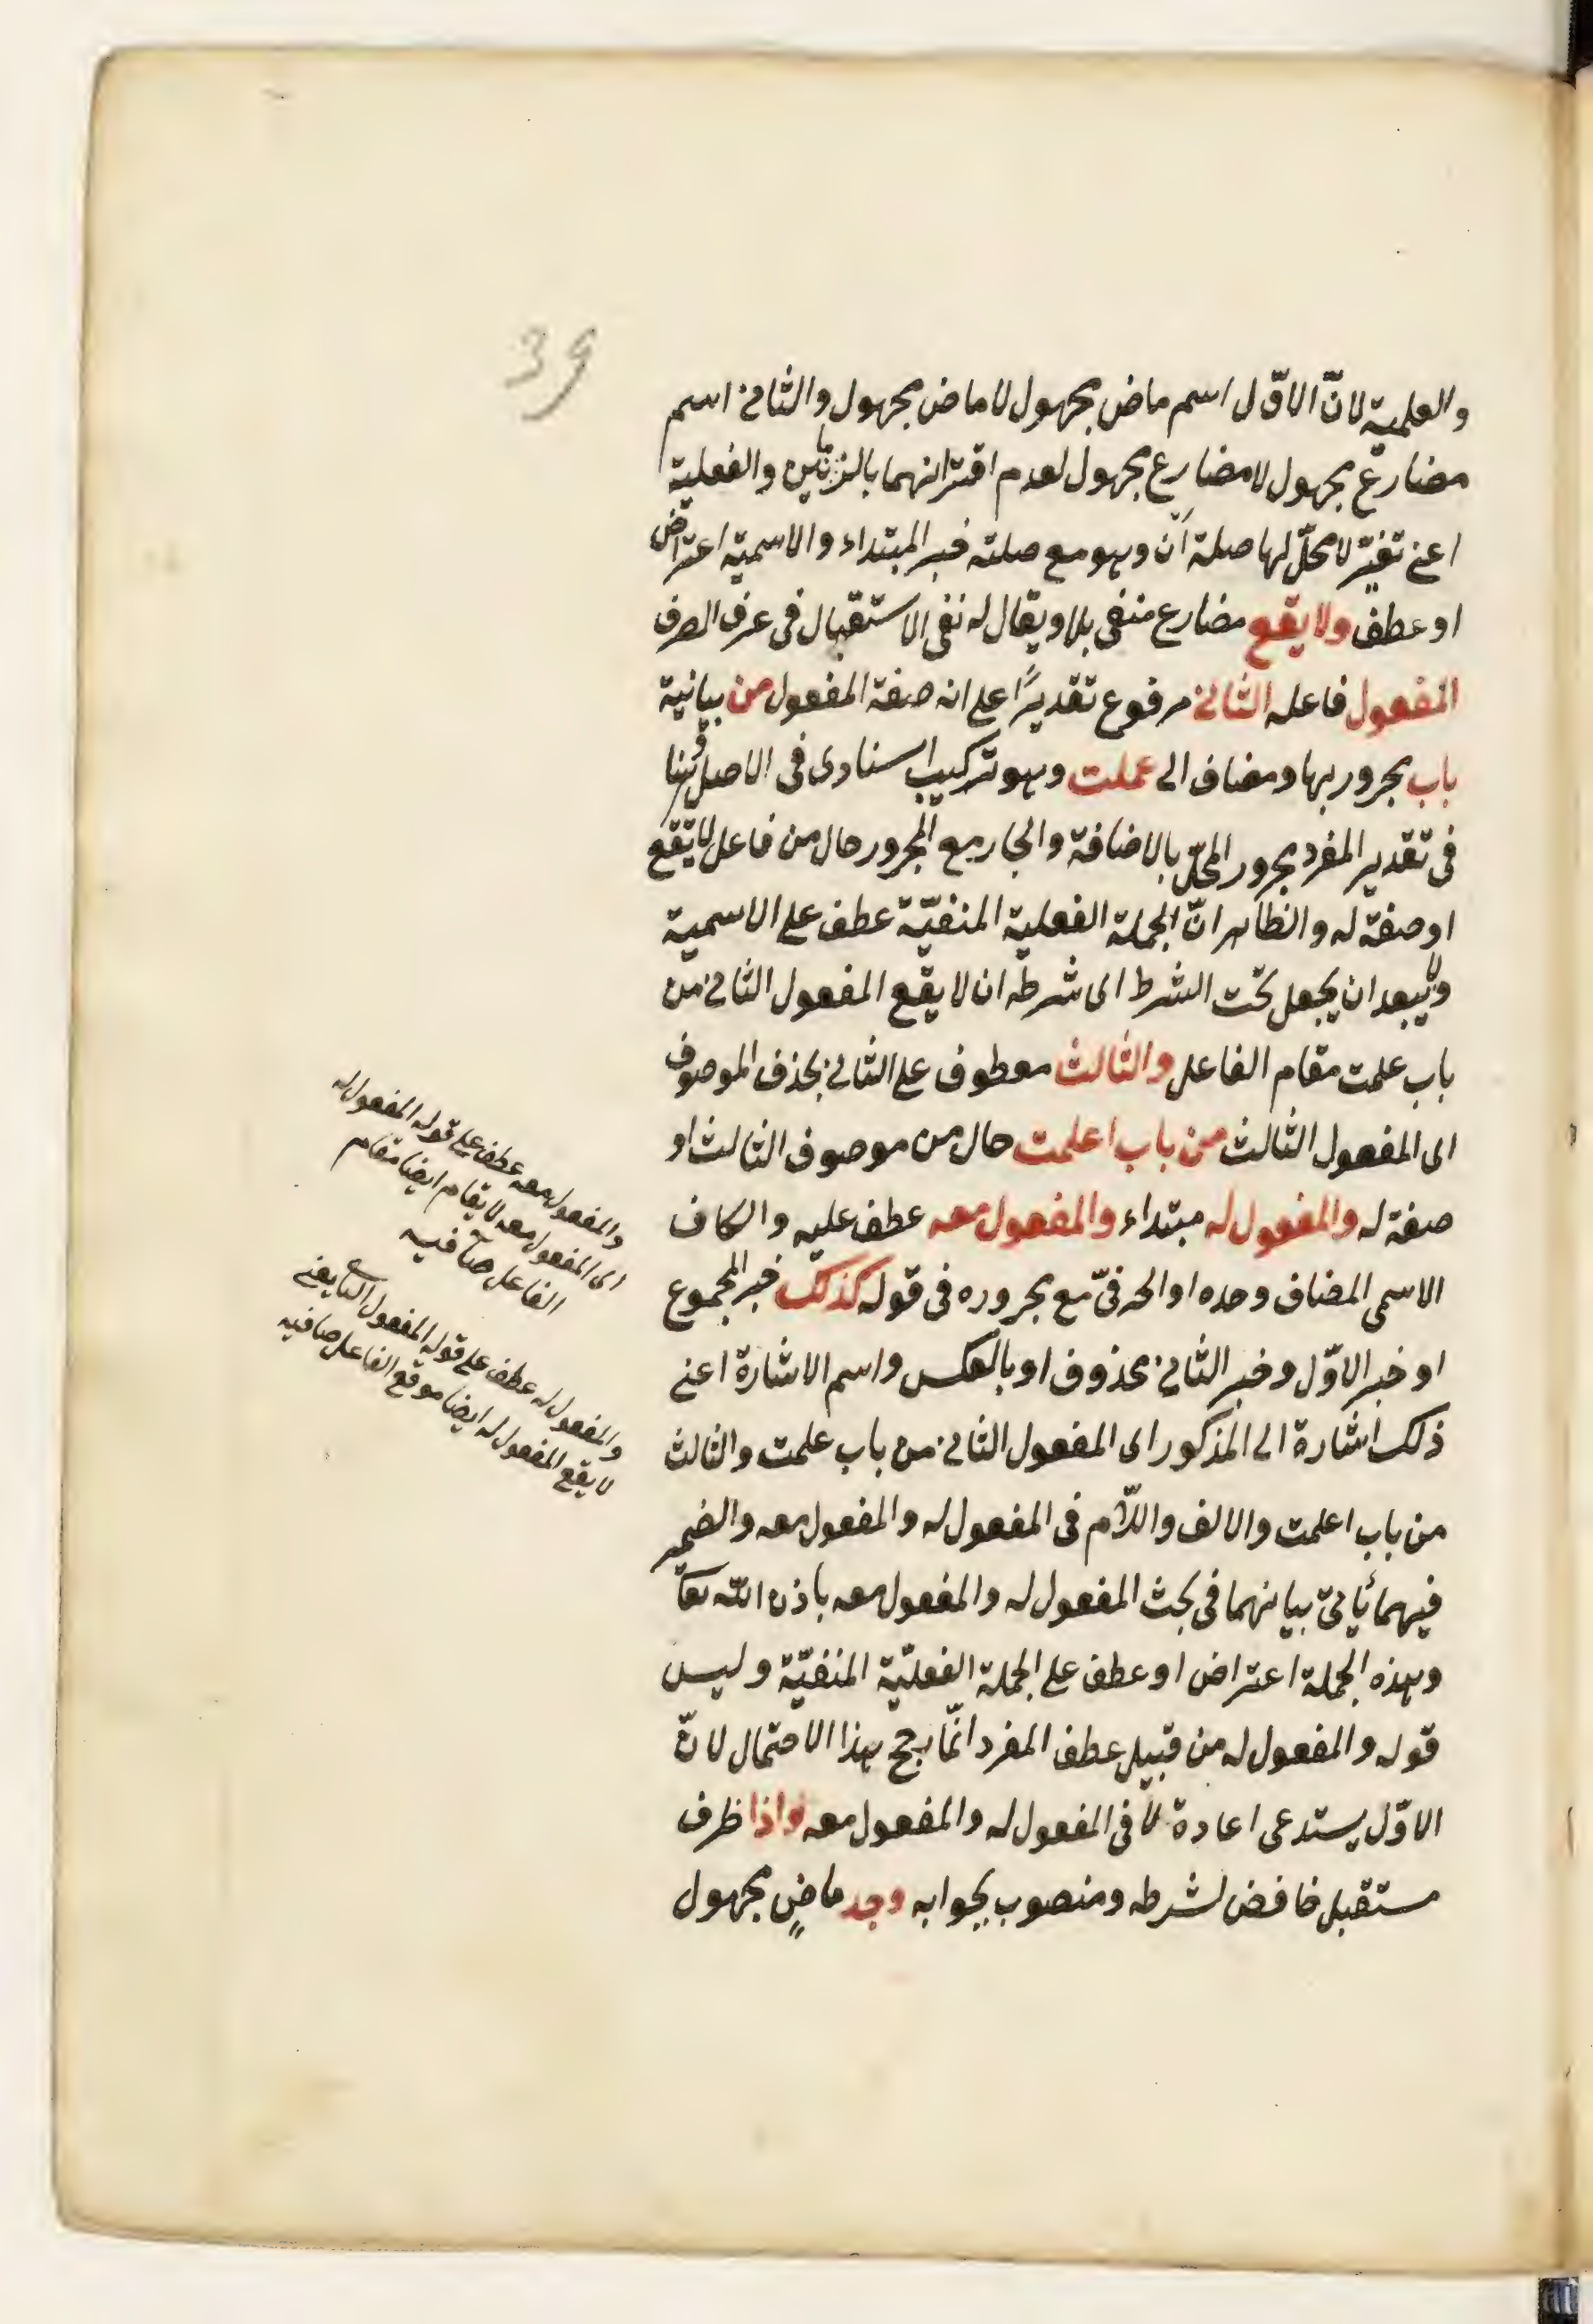 39
والعلمية لانّ الاوّل اسم ماض مجهول لا ماض مجهول والثانى اسم
مضارع مجهول لا مضارع مجهول لعدم اقترانهما بالزمانين والفعلية
اعنى تغيّر لا محلّ لها صلة اَنْ وهو مع صلته خبر المبتداء والاسمية اعتراض
او عطف ولا يقع مضارع منفى بلا ويقال له نفى الاستقبال فى عرف الصرف
المفعول فاعله الثانى مرفوع تقديرًا على انه صفة المفعول من بيانية
باب مجرور بها ومضاف الى علمت وهو تركيب اسنادى فى الاصل وهنا
فى تقدير المفرد مجرور المحلّ بالاضافة والجار مع المجرور حال من فاعل لا يقع
او صفة له والظاهر انّ الجملة الفعلية المنفيّة عطف على الاسمية
ولا يبعد ان يجعل تحت الشرط اى شرطه ان لا يقع المفعول الثانى من
باب علمت مقام الفاعل والثالث معطوف على الثانى بحذف الموصوف
اى المفعول الثالث من باب اعلمت حال من موصوف الثالث او
صفة له والمفعول له مبتداء والمفعول معه عطف عليه والكاف
الاسمى المضاف وحده او الحرفىّ مع مجروره فى قوله كذلك خبر المجموع
او خبر الاوّل وخبر الثانى محذوف او بالعكس واسم الاشارة اعنى
ذلك اشارة الى المذكور اى المفعول الثانى من باب علمت والثالث
من باب اعلمت والالف واللّام فى المفعول له والمفعول معه والضمير
فيهما يأتى بيانهما فى بحث المفعول له والمفعول معه باذن الله تعا
وهذه الجملة اعتراض او عطف على الجملة الفعليّة المنفيّة وليس
قوله والمفعول له من قبيل عطف المفرد انّما رجح هذا الاحتمال لانّ
الاوّل يستدعى اعادة لا فى المفعول له والمفعول معه واذا ظرف
مستقبل خافض لشرطه ومنصوب بجوابه وجد ماضٍ مجهول
والمفعول معه عطف على قوله المفعول له
اى المفعول معه لا يقام ايضا مقام
الفاعل صافيه
والمفعول له عطف على قوله المفعول الثانى يعنى
لا يقع المفعول له ايضا موقع الفاعل صافيه